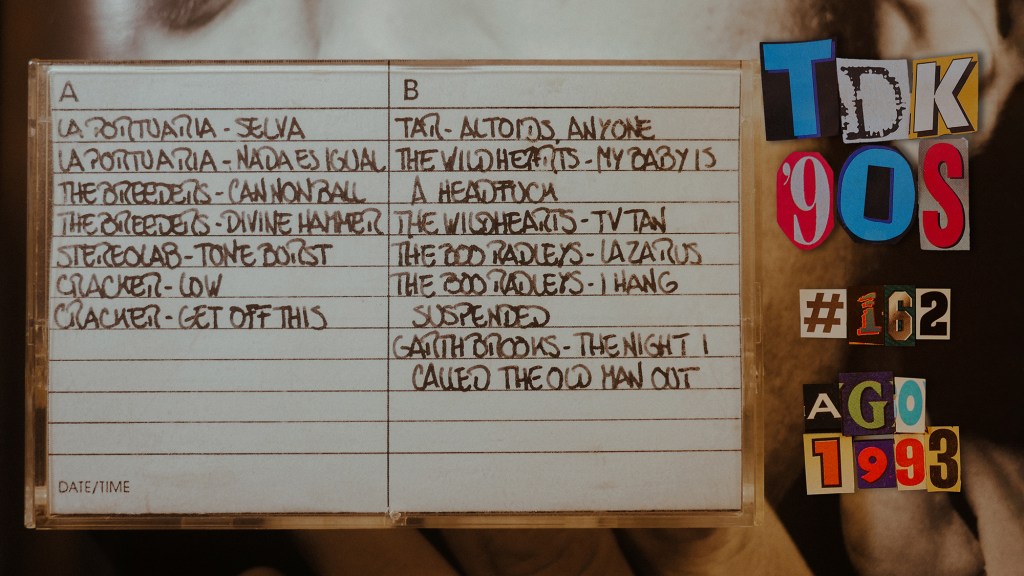 A
LA PORTUARIA - SELVA
LA PORTUARIA - NADA ES IGUAL
THE BREEDERS - CANNONBALL
THE BREEDERS - DIVINE HAMMER
STEREOLAB - TONE BURST
CRACKER - LOW
CRACKER - GET OFF THIS
DATE/TIME
B
TAR - ALTOIDS, ANYONE
THE WILDHEARTS - MY BABY IS
A HEADFUCK
THE WILDHEARTS - TV TAN
THE BOO RADLEYS - LAZARUS
THE BOO RADLEYS - I HANG
SUSPENDED
GARTH BROOKS - THE NIGHT I
CALLED THE OLD MAN OUT
TDK
'90S
#162
AGO
1993